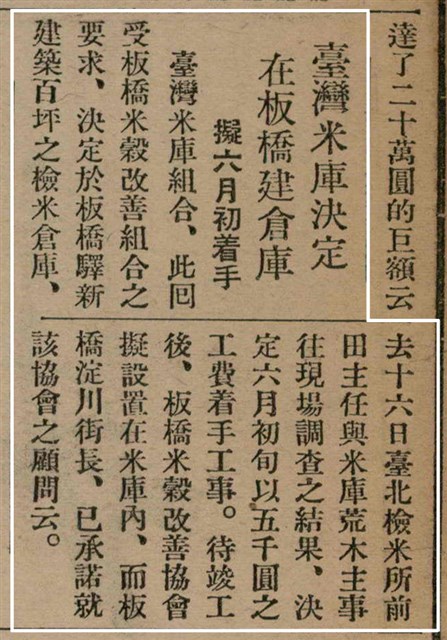 達了二十萬圓的巨額云
臺灣米庫決定
在板橋建倉庫
擬六月初着手
臺灣米庫組合、此囘
受板橋米穀改善組合之
要求、決定於板橋驛新
建築百坪之檢米倉庫、
去十六日臺北檢米所前
田主任與米庫荒木主事
往現場調査之結果、決
定六月初旬以五千圓之
工費着手工事。待竣工
後、板橋米穀改善協會
擬設置在米庫內、而板
橋淀川街長、已承諾就
該協會之顧問云。